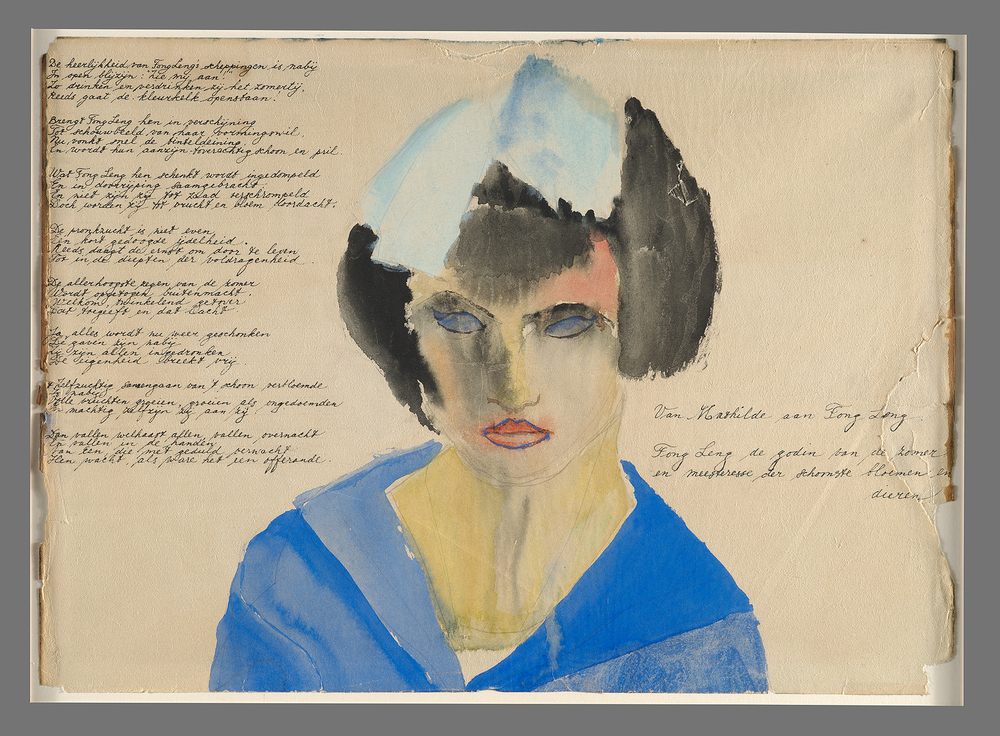 De heerlijkheid van Fong Leng's scheppingen is nabij
In open blijzijn: "zie mij aan!"
Zo drinken en verdrinken zij het zomertij,
Reeds gaat de kleurkelk openstaan.
Brengt Fong Leng hen in verschijning
Tot schouwbeeld van haar vormingswil,
Nu vonkt snel de
En wordt hun aanzijn toverachtig schoon en pril.
Wat Fong Leng hen schenkt wordt ingedompeld
En in doorrijping saamgebracht.
En niet zijn zij tot zaad verschrompeld
Doch worden zij tot vrucht en bloem doordacht.
De pronkzucht is niet even
Een kort gedoogde ijdelheid.
Reeds daagt de ernst om door te leven
Tot in de diepten der voldragenheid.
De allerhoogste zegen van de zomer
Wordt opgetogen buitenmacht.
Welkom, twinkelend getover
Dat toegeeft en dat lacht.
Ja, alles wordt nu weer geschonken
De gaven zijn nabij
Zij zijn allen ingedronken
De eigenheid breekt vrij.
Zelfzuchtig samengaan van 't schoon verbloemde
Is nabij
Volle vruchten groeien, groeien als ongedoemden
In machtig zelfzijn zij aan zij.
Dan vallen weldra allen, vallen overnacht
En vallen in de handen
Van een die met geduld verwacht
Hen wacht, als ware het een offerande.
Van Mathilde aan Fong Leng
Fong Leng de godin van de zomer
en meesteresse der schoonste bloemen en
dieren